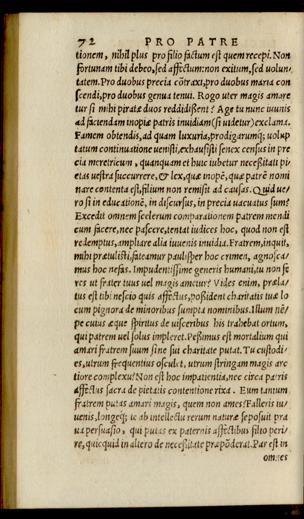 72 PRO PATRE
tionem, nihil plus pro filio factum est quem recepi. Non
fortunam tibi debeo, sed affectum: non exitum, sed volun,
tatem. Pro duobus precia cōtraxi, pro duobus maria con
scendi, pro duobus genua tenui. Rogo uter magis amare
tur si mihi piratæ duos reddidissent? Age tu nunc iuuenis
ad faciendam inopiæ patris inuidiam (si uidetur) exclama.
Famem obtendis, ad quam luxuria, prodigarumq; uolup
tatum continuatione uenisti, exhausisti senex census in pre
cia meretricum, quanquam et huic iubetur necessitati pi
etas uestra succurrere, & lex, quæ inopē, quæ patrē nomi
nare contenta est, filium non remisit ad causas. Quid ue
ro si in educationē, in discursus, in precia uacuatus sum?
Excedit omnem scelerum comparationem patrem mendi
cum facere, nec pascere, tentat iudices hoc, quod non est
redemptus, ampliare alia iuuenis inuidia. Fratrem, inquit,
mihi prætulisti, fateamur paulisper hoc crimen, agnosca
mus hoc nefas. Impudentissime generis humani, tu non fe
res ut frater tuus uel magis ametur? Vides enim, prælа
tus est tibi nescio quis affectus, possident charitatis tuæ lo
cum pignora de minoribus sumpta nominibus. Illum nē
pe cuius æque spiritus de uisceribus his trahebat ortum,
qui patrem uel solus impleret. Pessimus est mortalium qui
amari fratrem suum sine sui charitate putat. Tu custodi
es, utrum frequentius osculer, utrum stringam magis arc
tiore complexu? Non est hoc impatientia, nec circa patris
affectus sacra de pietatis contentione rixa. Eum tantum
fratrem putas amari magis, quem non ames? Falleris iu
uenis, longeq; te ab intellectu rerum naturæ seposuit pra
ua persuasio, qui putas ex paternis affectibus filio peri
re, quicquid in altero de necessitate præpōderat. Par est in
omnes